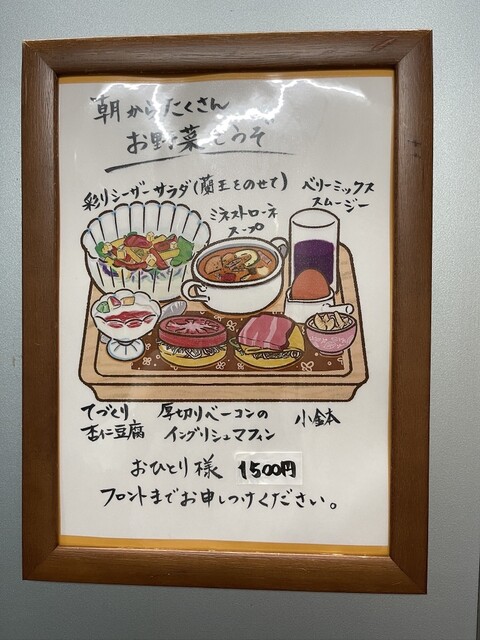 朝からたくさん
お野菜どうぞ
彩りシーザーサラダ(蘭王をのせて)
ミネストローネ
スープ
ベリーミックス
スムージー
てづくり
杏仁豆腐
厚切りベーコンの
イングリッシュマフィン
小鉢
おひとり様 1500円
フロントまでお申しつけください。